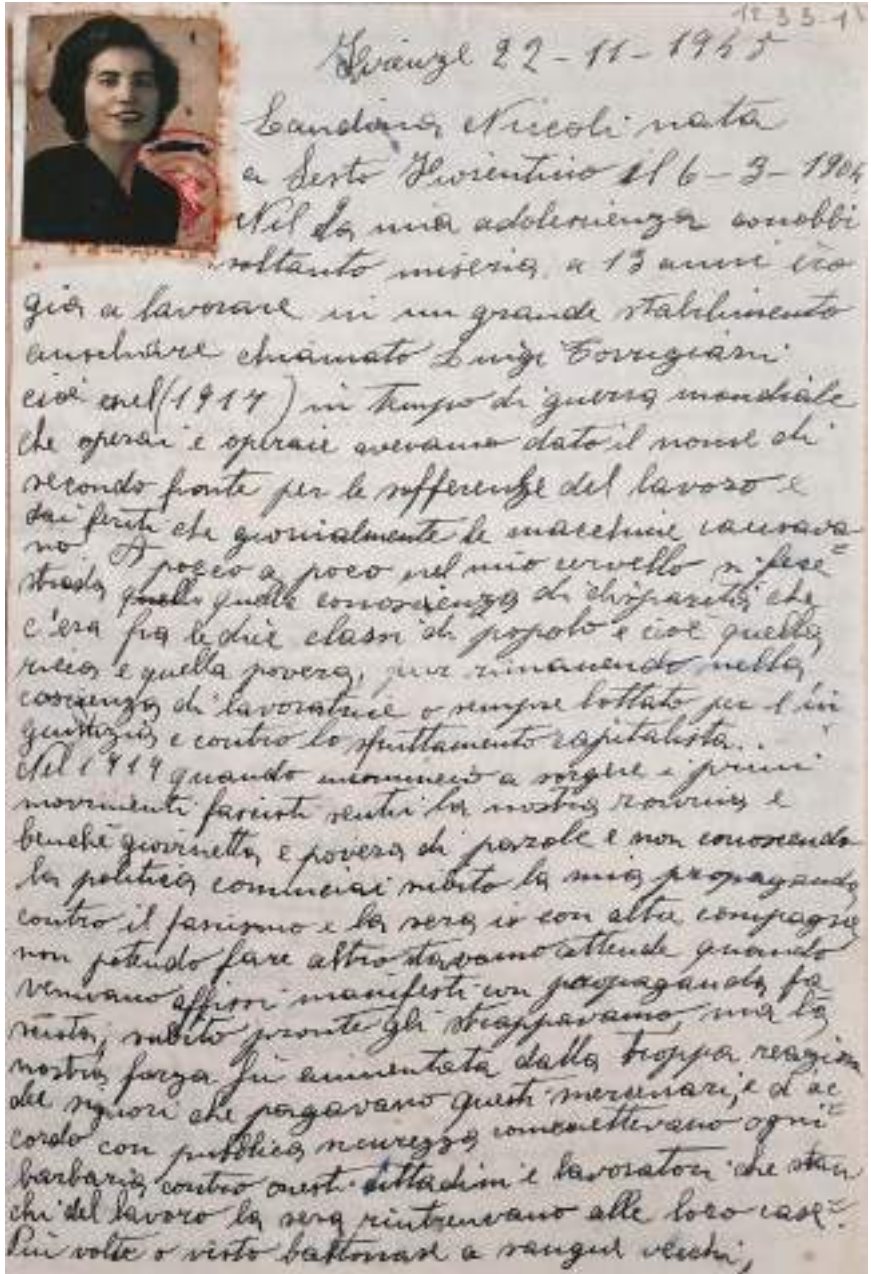 1233-1
Firenze 22-11-1945
Landina Niccoli nata
a Sesto Fiorentino il 6-3-1904
Nel la mia adolescienza conobbi
soltanto miseria, a 13 anni ero
già a lavorare in un grande stabilimento
chiamato Luigi Torrigiani
cioè nel (1917) in tempo di guerra mondiale
che operai e operaie avevamo dato il nome di
secondo fronte per le sofferenze del lavoro e
dai feriti che giornialmente le macchine causava=
no. A poco a poco nel mio cervello si fece
strada quella quella conoscienza di disparità che
c'era fra le due classi di popolo e cioè quella
ricca e quella povera, pur rimanendo nella
coscienza di lavoratrice o sempre lottato per l'in
giustizia e contro lo sfruttamento capitalista..
Nel 1919 quando incominciò a sorgere i primi
movimenti fascisti sentii la nostra rovina e
benchè giovinetta e povera di parole e non conoscendo
la politica cominciai subito la mia propaganda
contro il fascismo e la sera io con altre compagne
non potendo fare altro stavamo attende quando
venivano affissi manifesti con propaganda fa
scista, subito pronte gli strappavamo, ma la
nostra forza fu aumentata dalla troppa reazion
dei signori che pagavano questi mercenari, e d'ac=
cordo con pubblica sicurezza commettevano ogni
barbaria contro onesti cittadini e lavoratori che stan
chi del lavoro la sera rintrenvano alle loro case=.
Più volte o visto bastonare a sangue vecchi,